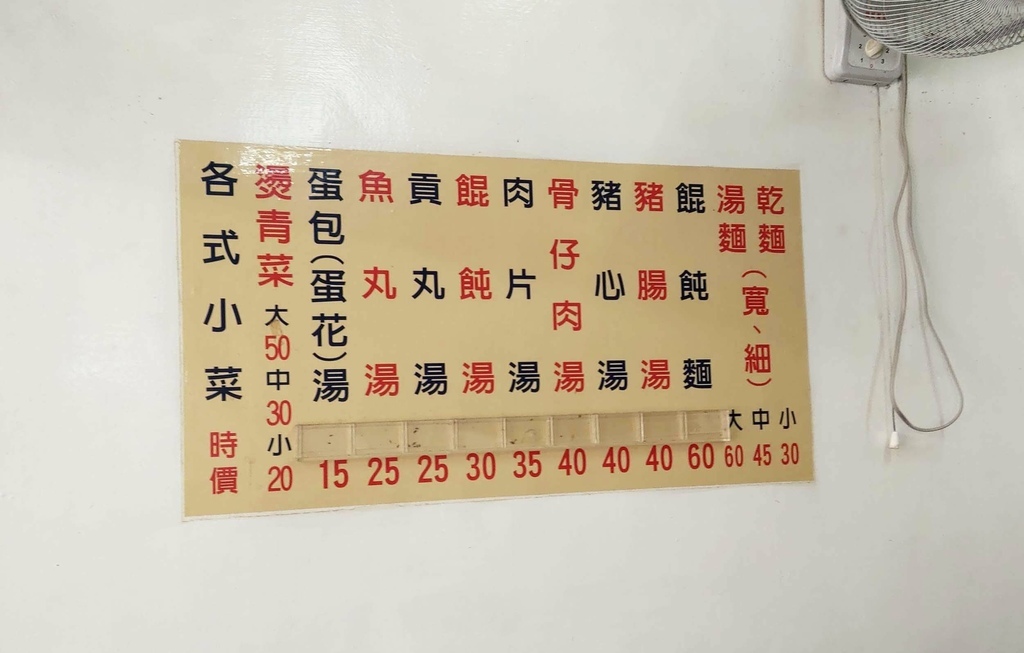 乾麵
湯麵
(寬、細)
大 中 小
60 45 30
餛飩麵
60
豬腸湯
40
豬心湯
40
骨仔肉湯
40
肉片湯
35
餛飩湯
30
貢丸湯
25
魚丸湯
25
蛋包(蛋花)湯
15
燙青菜
大
50
中
30
小
20
各式小菜
時價